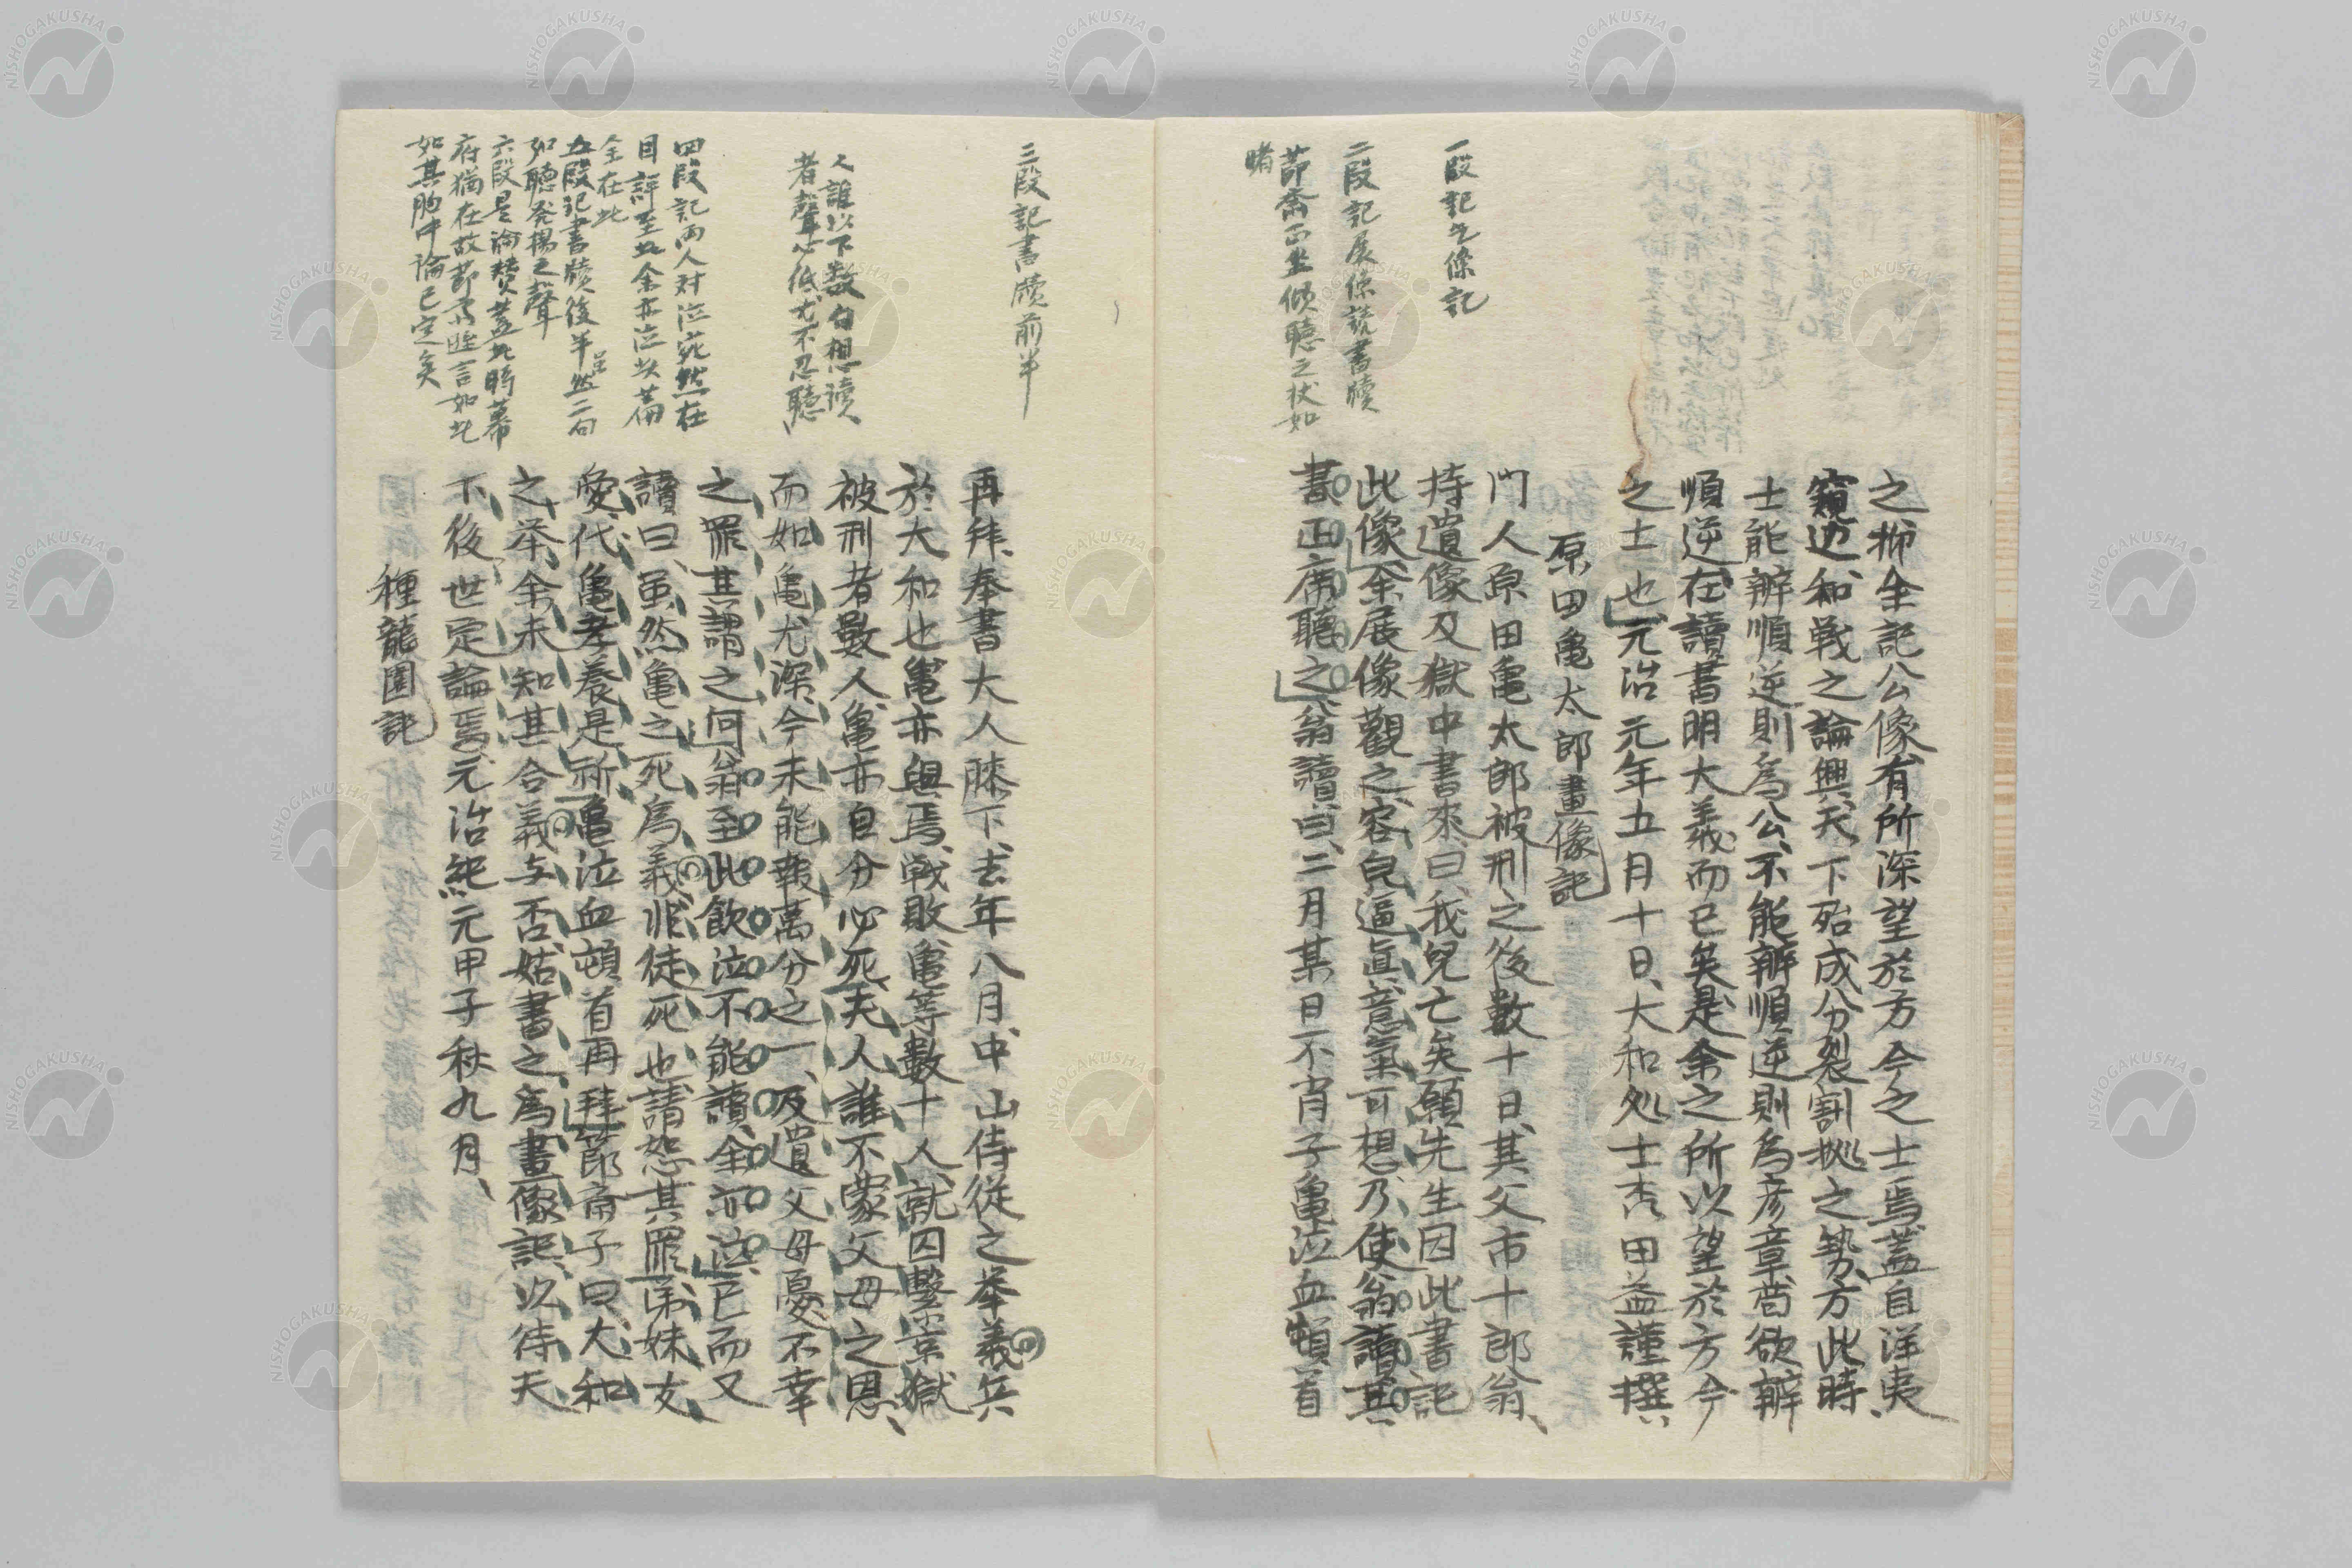 之抑余記公像有所深望於方今之士焉蓋自洋夷
窺辺和戦之論興天下殆成分裂割拠之勢方此時
士能辨順逆則為公不能辨順逆則為彦章苟欲辨
順逆在讀書明大義而已矣是余之所以望於方今
之士也元治元年五月十日大和処士森田益謹撰
原田亀太郎畫像記
一段記乞像記
門人原田亀太郎被刑之後數十日其父市十郎翁
持遺像及獄中書來曰我兒亡矣願先生因此書記
二段記展像読書牘
此像余展像觀之容皃逼眞意氣可想乃使翁讀其
節斎正坐傾聴之状如
睹
書正席聽之翁讀曰二月某日不肖子亀泣血頓首
三段記書牘前半
再拜奉書大人膝下去年八月中山侍従之举義兵
於大和也亀亦與焉戦敗亀等數十人就囚繫京獄
被刑者數人亀亦自分必死夫人誰不蒙父母之恩
人誰以下数句想読
者聲必低尤不忍聴
而如亀尤深今未能報萬分之一反遺父母憂不幸
之罪其謂之何翁至此飲泣不能讀余亦泣已而又
四段記両人対泣宛然在
目評至此余亦泣此篇
全在此
讀曰虽然亀之死為義非徒死也請恕其罪弟妹友
愛代亀孝養是祈亀泣血頓首再拜節斎子曰大和
五段記書牘後半虽然二句
如聴発揚之聲
之举余未知其合義与否姑書之為畫像記以待天
六段是論賛蓋此時幕
府猶在故節斎咥言如此
如其胸中論已定矣
下後世定論焉元治紀元甲子秋九月
種龍園記
NISHOGAKUSHA